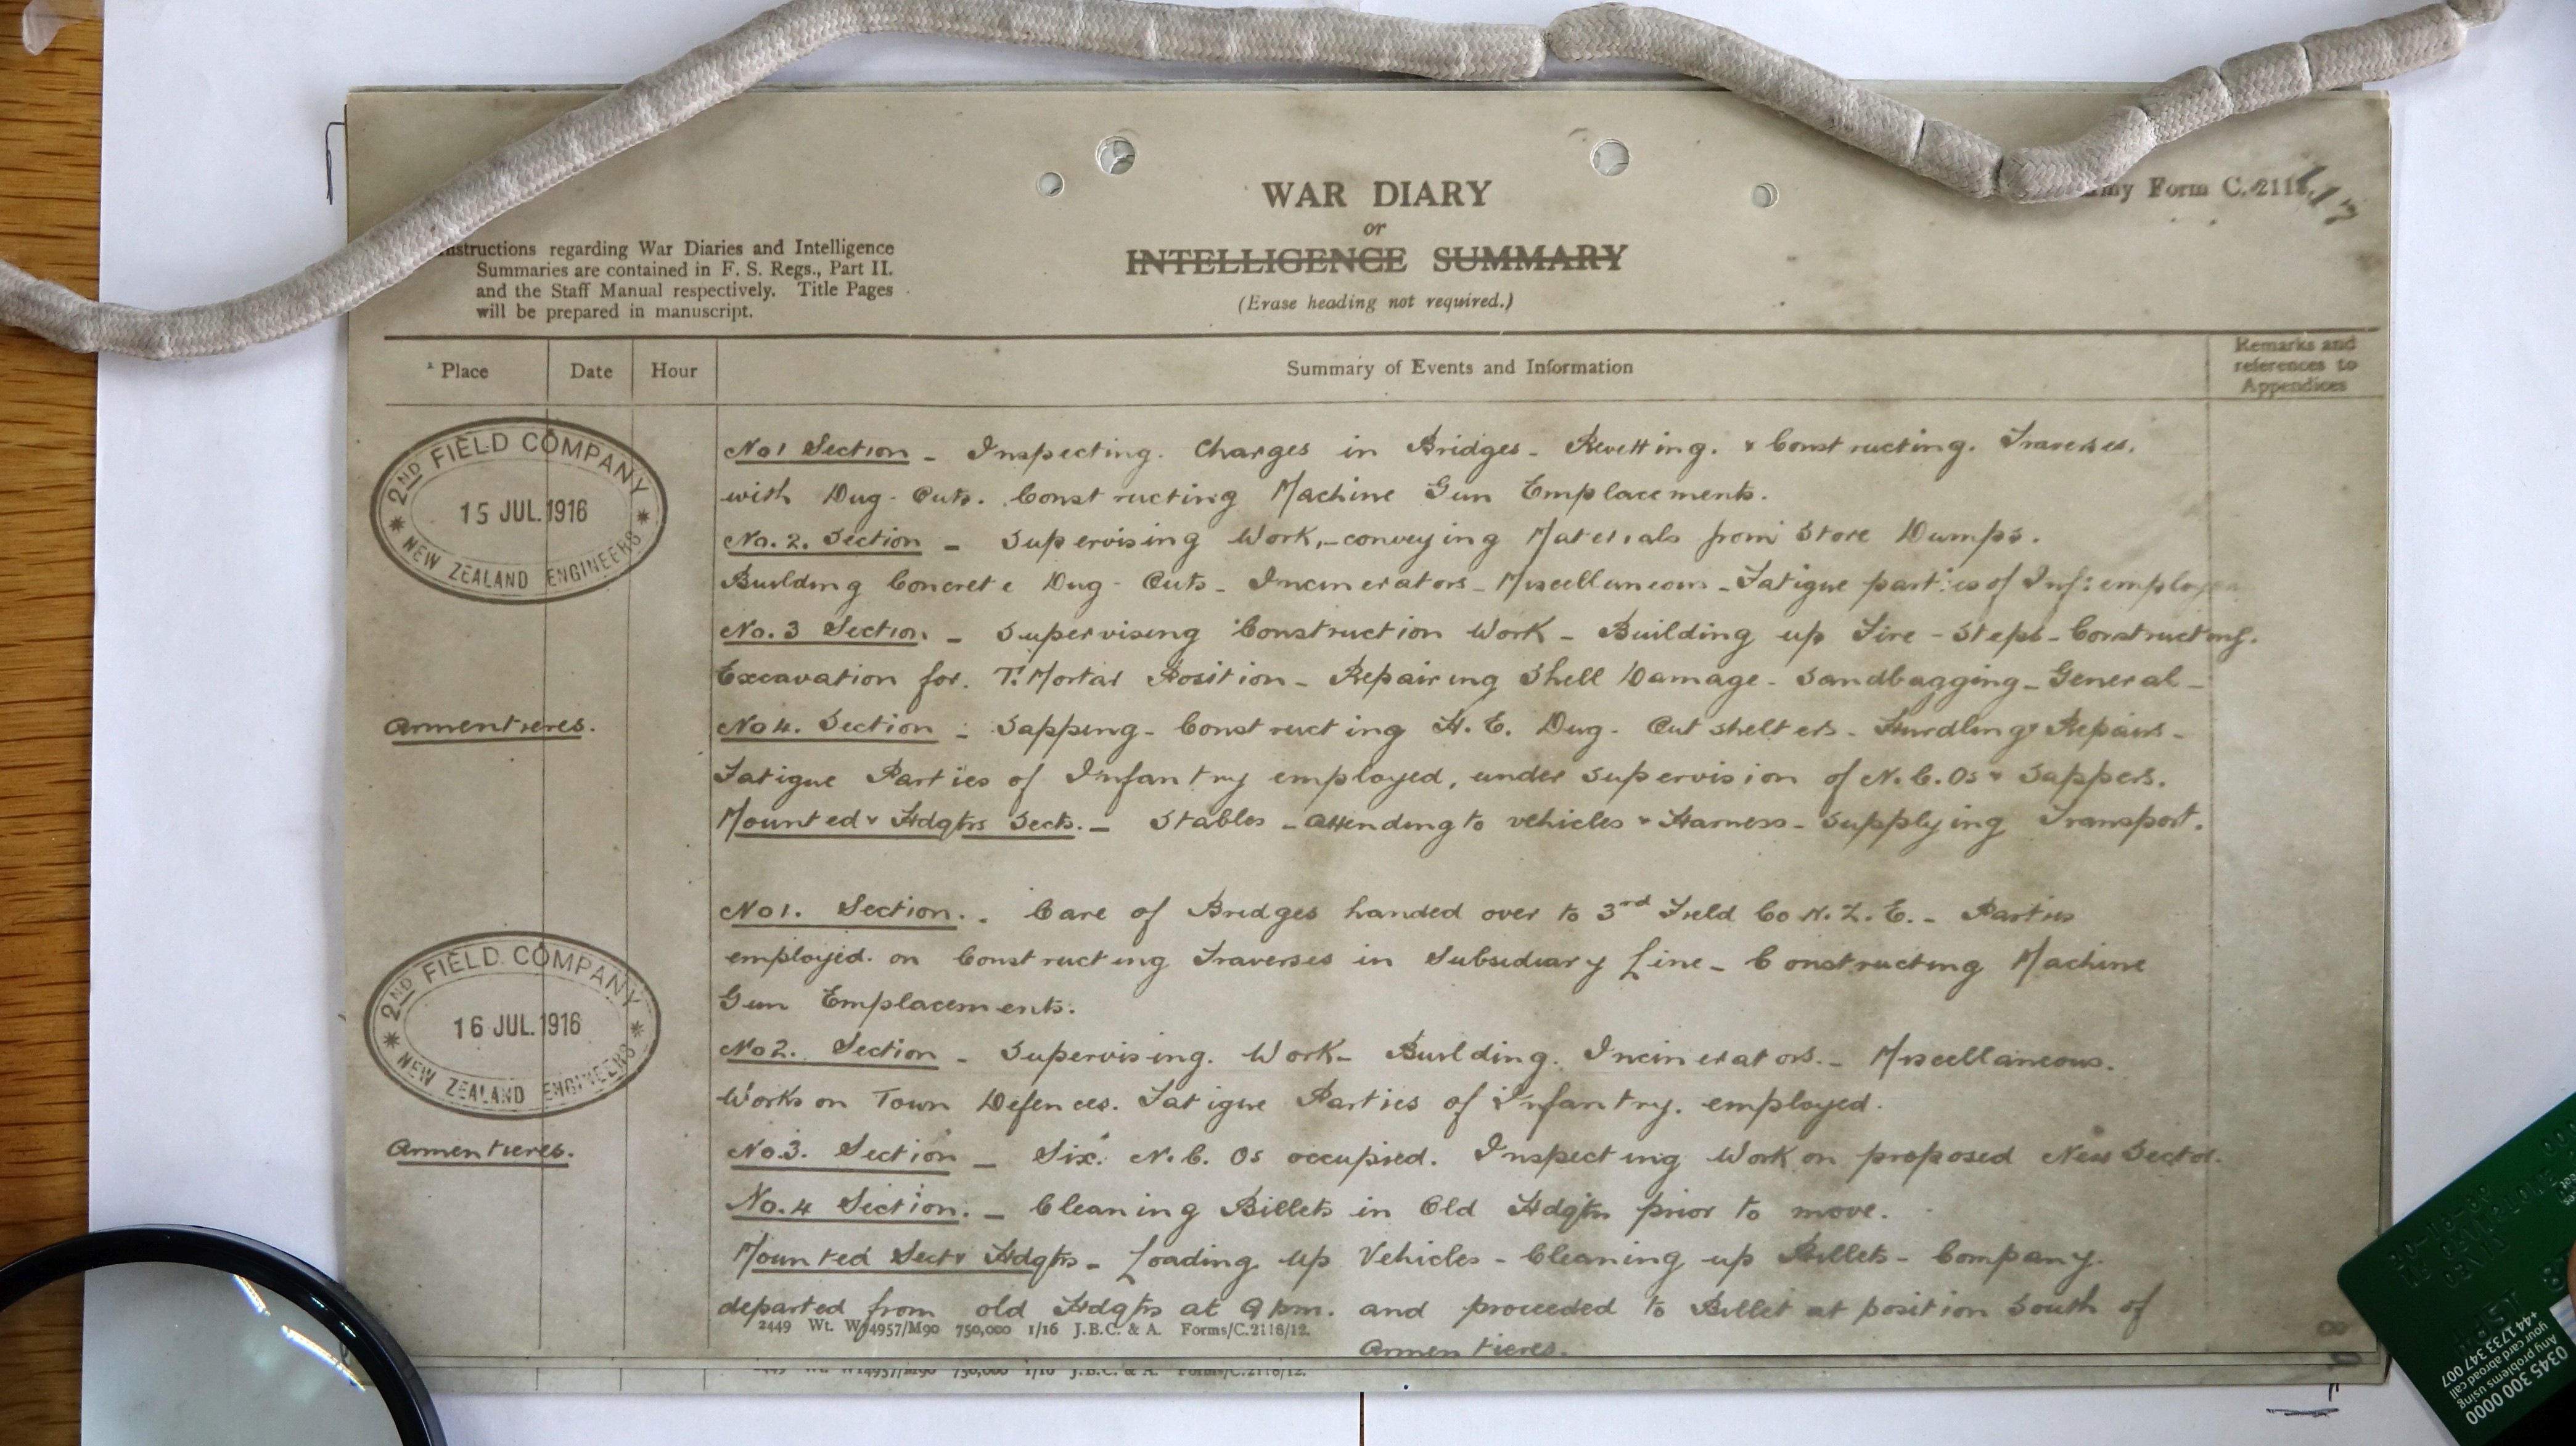 WAR DIARY
or
INTELLIGENCE SUMMARY
(Erase heading not required.)
Form C. 2118.
Instructions regarding War Diaries and Intelligence
Summaries are contained in F. S. Regs., Part II.
and the Staff Manual respectively. Title Pages
will be prepared in manuscript.
Place Date Hour Summary of Events and Information
Remarks and
references to
Appendices
2ND FIELD COMPANY
15 JUL. 1916
NEW ZEALAND ENGINEERS
Armentieres.
No 1 Section - Inspecting. Charges in Bridges - Revetting. & Constructing. Traverses.
with Dug-Outs. Constructing Machine Gun Emplacements.
No. 2. Section - Supervising Work, - conveying Materials from Store Dumps.
Building Concrete Dug-Outs - Incinerators - Miscellaneous - Fatigue parties of Inf: employed
No. 3 Section - Supervising Construction Work - Building up Fire-Steps - Constructing.
Excavation for. T. Mortar Position - Repairing Shell Damage - Sandbagging - General -
No 4. Section - Sapping - Constructing H.E. Dug-Out shelters - Hurdling & Repairs -
Fatigue Parties of Infantry employed, under supervision of N.C.Os & Sappers.
Mounted & Hdqtrs Sects. - Stables - attending to vehicles & Harness - Supplying Transport.
2ND FIELD COMPANY
16 JUL. 1916
NEW ZEALAND ENGINEERS
Armentieres.
No 1. Section. - Care of Bridges handed over to 3rd Field Co N.Z.E. - Parties
employed. on Constructing Traverses in Subsidiary Line - Constructing Machine
Gun Emplacements.
No 2. Section - Supervising. Work - Building. Incinerators. - Miscellaneous.
Works on Town Defences. Fatigue Parties of Infantry. employed.
No. 3. Section - Six. N.C.Os occupied. Inspecting Work on proposed New Sector.
No. 4 Section. - Cleaning Billets in Old Hdqtrs prior to move.
Mounted Sect & Hdqtrs - Loading up Vehicles - Cleaning up Billets - Company.
departed from old Hdqtrs at 9 pm. and proceeded to Billet at position South of
Armentieres.
2449 Wt. W14957/M90 750,000 1/16 J.B.C. & A. Forms/C.2118/12.
2449 Wt. W14957/M90 750,000 1/16 J.B.C. & A. Forms/C.2118/12.
0345 300 0000
Any problems using
your card abroad call
+44 1733 347 007